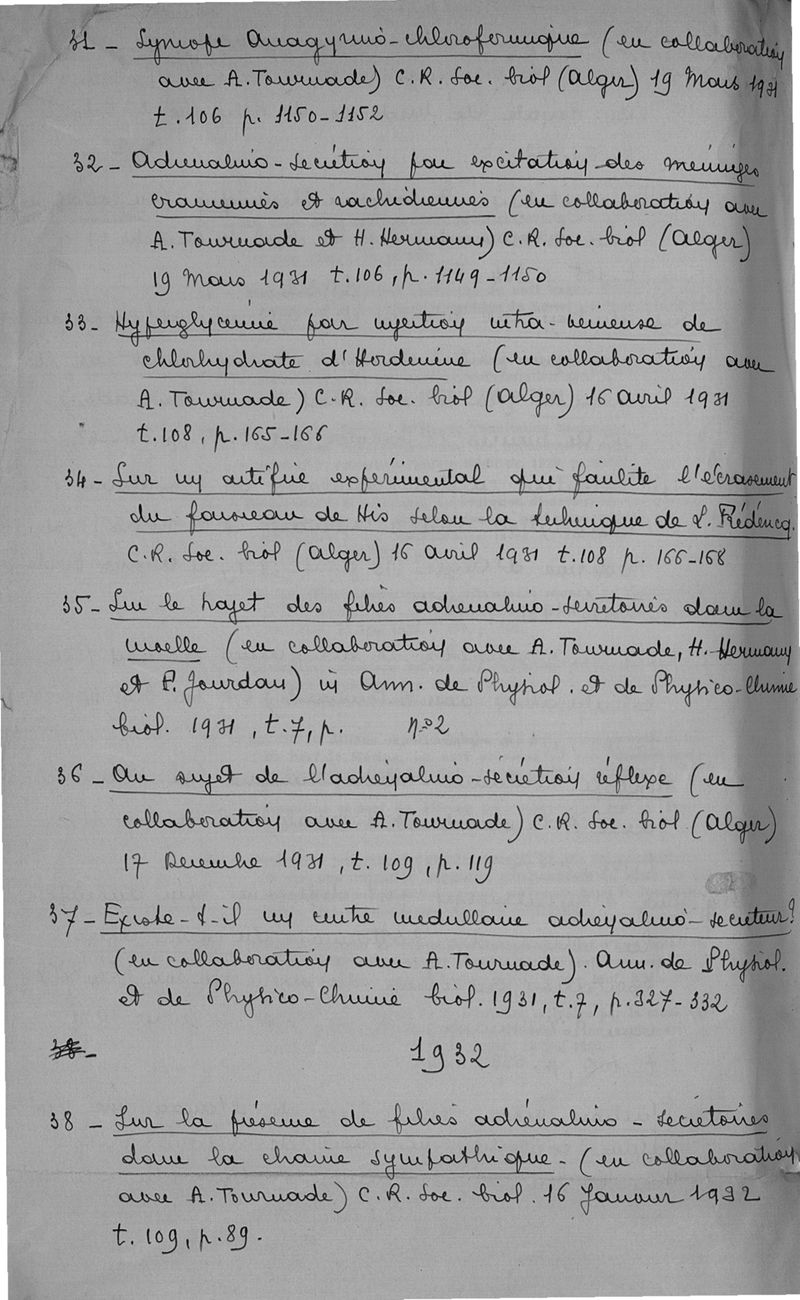 31 - Syncope Anagyrino-chloroformique (en collaboration
avec A. Tournade) C.R. Soc. biol (Alger) 19 Mars 1931
t. 106 p. 1150-1152
32 - Adrénalino-sécrétion par excitation des méninges
craniennes et rachidiennes (en collaboration avec
A. Tournade et H. Hermann) C.R. Soc. biol (Alger)
19 Mars 1931 t. 106, p. 1149-1150
33 - Hyperglycémie par injection intra-veineuse de
chlorhydrate d'Hordenine (en collaboration avec
A. Tournade) C.R. Soc. biol (Alger) 16 avril 1931
t. 108, p. 165-166
34 - Sur un artifice expérimental qui facilite l'écrasement
du faisceau de His selon la technique de L. Frédéricq.
C.R. Soc. biol (Alger) 16 avril 1931 t. 108 p. 166-168
35 - Sur le trajet des fibres adrénalino-sécrétoires dans la
moelle (en collaboration avec A. Tournade, H. Hermann
et F. Jourdan) in Ann. de Physiol. et de Physico-Chimie
biol. 1931, t. 7, p. n° 2
36 - Au sujet de l'adrénalino-sécrétion réflexe (en
collaboration avec A. Tournade) C.R. Soc. biol (Alger)
17 Décembre 1931, t. 109, p. 119
37 - Existe-t-il un centre médullaire adrénalino-sécréteur?
(en collaboration avec A. Tournade). Ann. de Physiol.
et de Physico-Chimie biol. 1931, t. 7, p. 327-332
38 - 1932
38 - Sur la présence de fibres adrénalino-sécrétoires
dans la chaine sympathique - (en collaboration
avec A. Tournade) C.R. Soc. biol. 16 Janvier 1932
t. 109, p. 89.